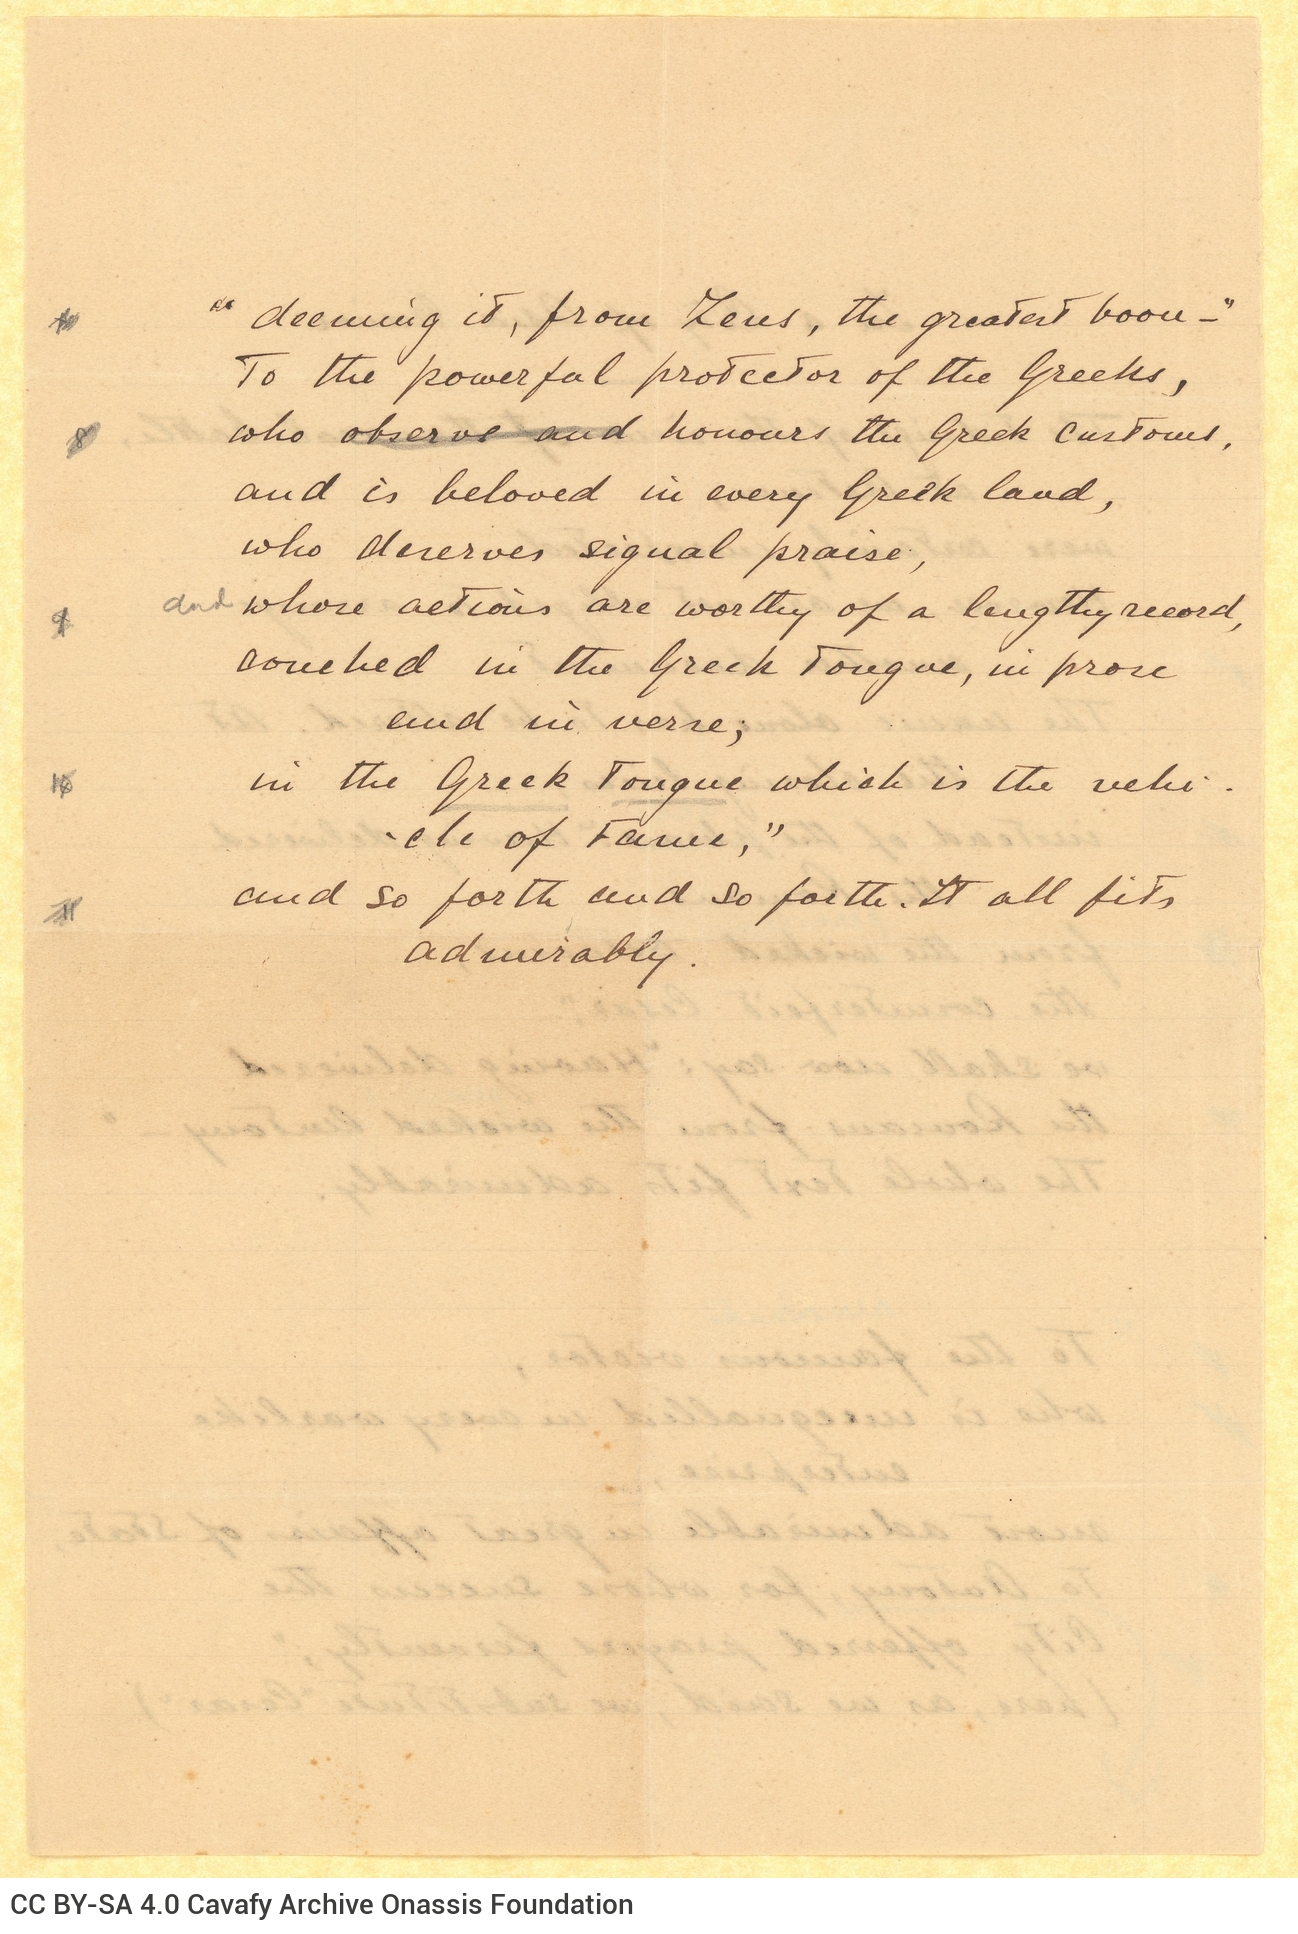 “ deeming it, from Zeus, the greatest boon –”
To the powerful protector of the Greeks,
8 who observe and honours the Greek customs,
and is beloved in every Greek land,
who deserves signal praise,
9 and whose actions are worthy of a lengthy record,
couched in the Greek Tongue, in prose
and in verse;
10 in the Greek Tongue which is the vehi-
-cle of Fame,”
11 and so forth and so forth. It all fits
admirably.
CC BY-SA 4.0 Cavafy Archive Onassis Foundation